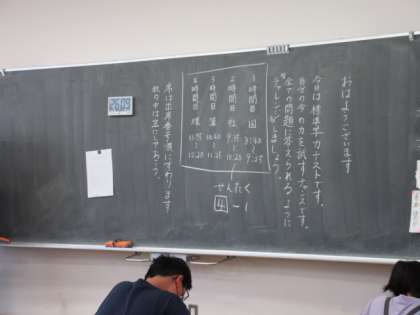 おはようございます
今日は標準学力テストです。
自分の今の力を試すチャンスです。
全ての問題に答えられるように
チャレンジしましょう。
1時間目 国 8:40~9:25
2時間目 社
3時間目 算 10:40~11:25
4時間目 理 11:35~12:20
せんたく
4-1
席は出席番号順にすわります
机の中は空にしましょう。
26.09